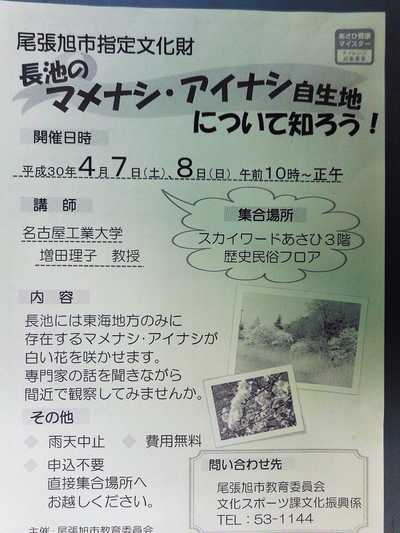 尾張旭市指定文化財
あさひ健康
マイスター
チャレンジ
対象事業
長池の
マメナシ・アイナシ自生地
について知ろう！
開催日時
平成30年4月7日(土)、8日(日) 午前10時～正午
講師
名古屋工業大学
増田理子 教授
集合場所
スカイワードあさひ3階
歴史民俗フロア
内容
長池には東海地方のみに
存在するマメナシ・アイナシが
白い花を咲かせます。
専門家の話を聞きながら
間近で観察してみませんか。
その他
◆ 雨天中止 ◆ 費用無料
◆ 申込不要
直接集合場所へ
お越しください。
問い合わせ先
尾張旭市教育委員会
文化スポーツ課文化振興係
TEL：53-1144
主催：尾張旭市教育委員会